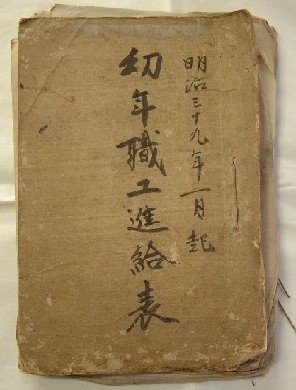 明治三十九年一月起
幼年職工進給表